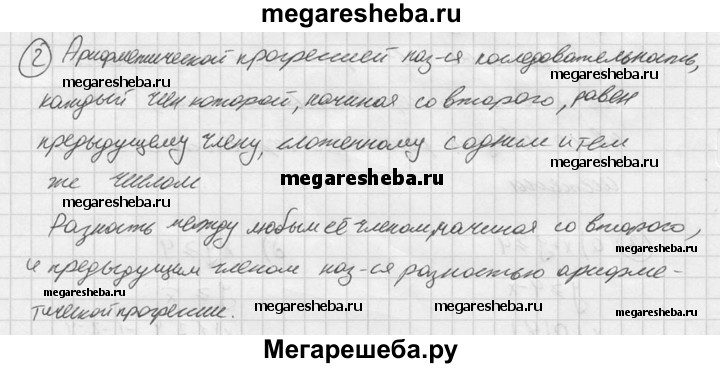 megaresheba.ru
2) Арифметической прогрессией наз-ся последовательность,
megaresheba.ru megaresheba.ru megaresheba.ru
каждый член которой, начиная со второго, равен
предыдущему члену, сложенному с одним и тем
megaresheba.ru megaresheba.ru megaresheba.ru
же числом
Разность между любым её членом, начиная со второго,
и предыдущим членом наз-ся разностью арифме-
megaresheba.ru megaresheba.ru megaresheba.ru megaresheba.ru
тической прогрессии.
Мегарешеба.ру